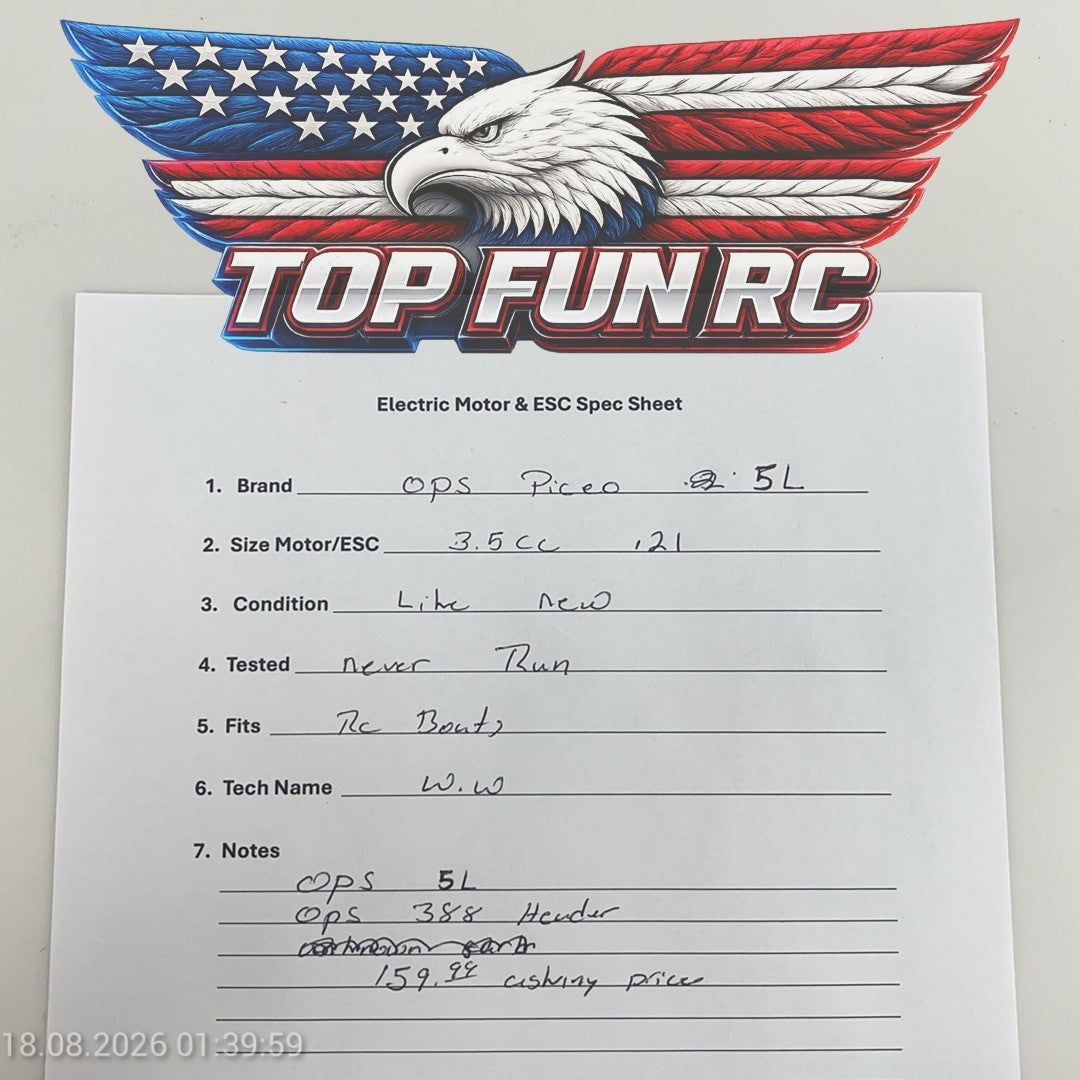 TOP FUN RC
Electric Motor & ESC Spec Sheet
1. Brand OPS Piceo 5L
2. Size Motor/ESC 3.5cc .21
3. Condition Like New
4. Tested never Run
5. Fits Rc Boats
6. Tech Name W.W
7. Notes
OPS 5L
OPS 388 Header
159.99 asking price
18.08.2026 01:39:59